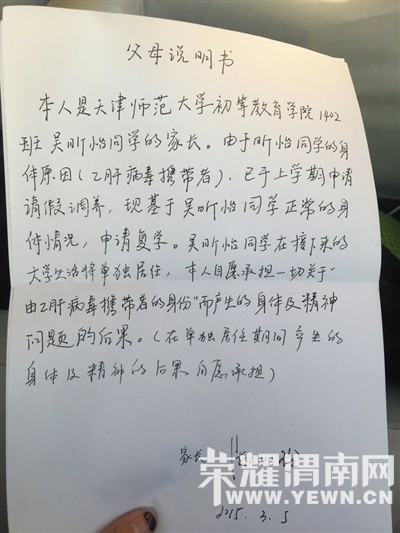 父母说明书
本人是天津师范大学初等教育学院1402
班吴昕怡同学的家长。由于昕怡同学的身
体原因（乙肝病毒携带者），已于上学期申请
请假调养，现基于吴昕怡同学正常的身
体情况，申请复学。吴昕怡同学在接下来的
大学生活将单独居住，本人自愿承担一切关于
“由乙肝病毒携带者的身份”而产生的身体及精神
问题的后果。（在单独居住期间产生的
身体及精神的后果自愿承担）
家长
2015.3.5
荣耀渭南网
WWW.YEWN.CN